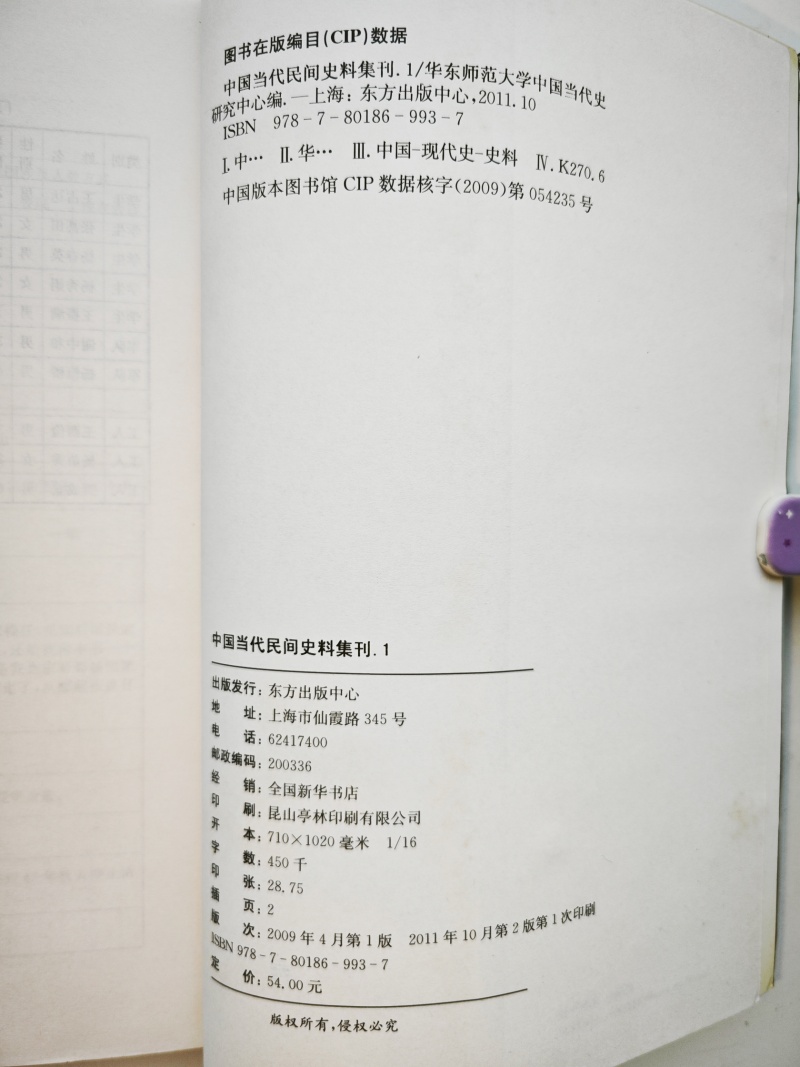 图书在版编目(CIP)数据
中国当代民间史料集刊.1/华东师范大学中国当代史
研究中心编.—上海：东方出版中心，2011.10
ISBN 978-7-80186-993-7
Ⅰ.中… Ⅱ.华… Ⅲ.中国-现代史-史料 Ⅳ.K270.6
中国版本图书馆CIP数据核字(2009)第054235号
中国当代民间史料集刊.1
出版发行：东方出版中心
地 址：上海市仙霞路345号
电 话：62417400
邮政编码：200336
经 销：全国新华书店
印 刷：昆山亭林印刷有限公司
开 本：710×1020毫米 1/16
字 数：450千
印 张：28.75
插 页：2
版 次：2009年4月第1版 2011年10月第2版第1次印刷
ISBN 978-7-80186-993-7
定 价：54.00元
版权所有，侵权必究